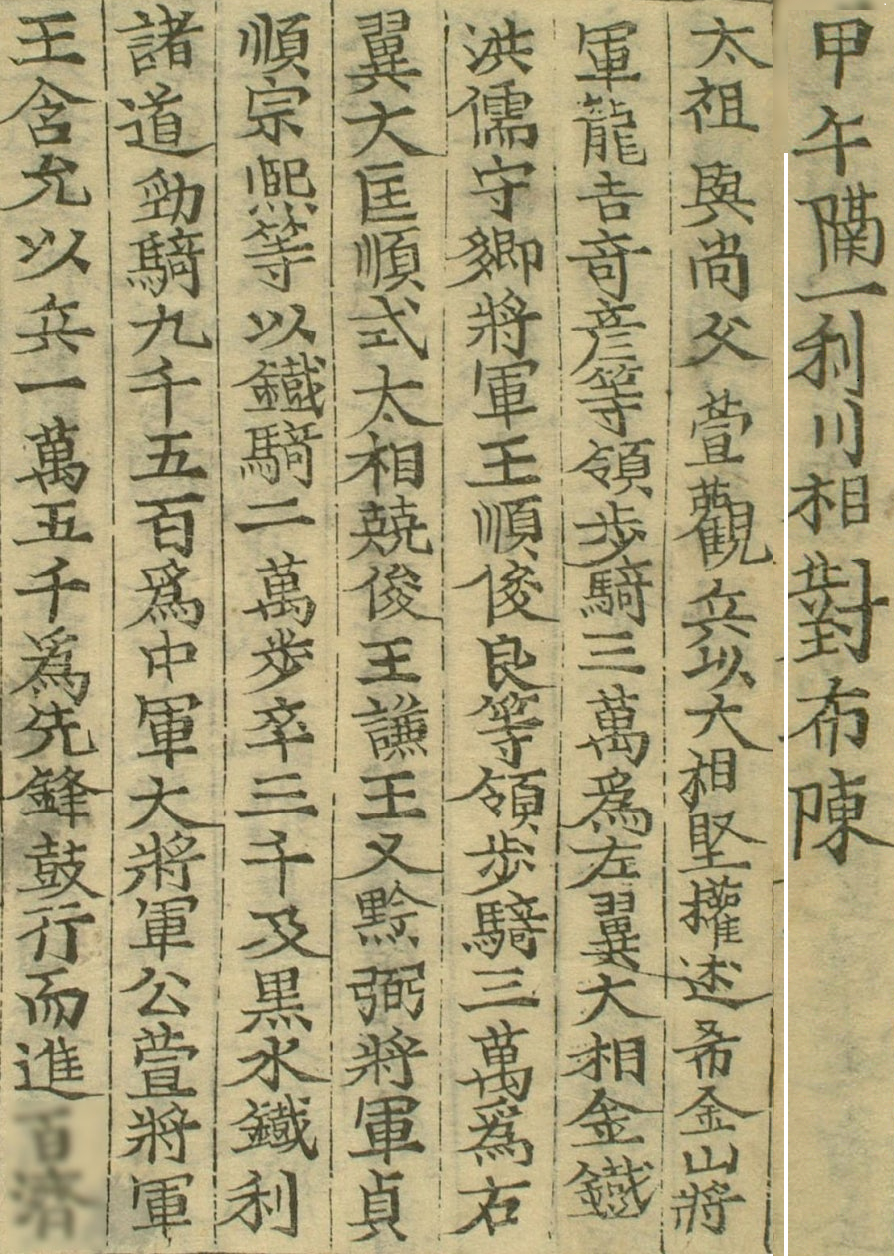 甲午隔一利川相對布陳
太祖與尚父萱觀兵以大相堅權述希金山將
軍龍吉奇彦等領步騎三萬爲左翼大相金鐵
洪儒守卿將軍王順俊良等領步騎三萬爲右
翼大匡順式太相兢俊王謙王又黔弼將軍貞
順宗熙等以鐵騎二萬步卒三千及黑水鐵利
諸道勁騎九千五百爲中軍大將軍公萱將軍
王含允以兵一萬五千爲先鋒鼓行而進百濟